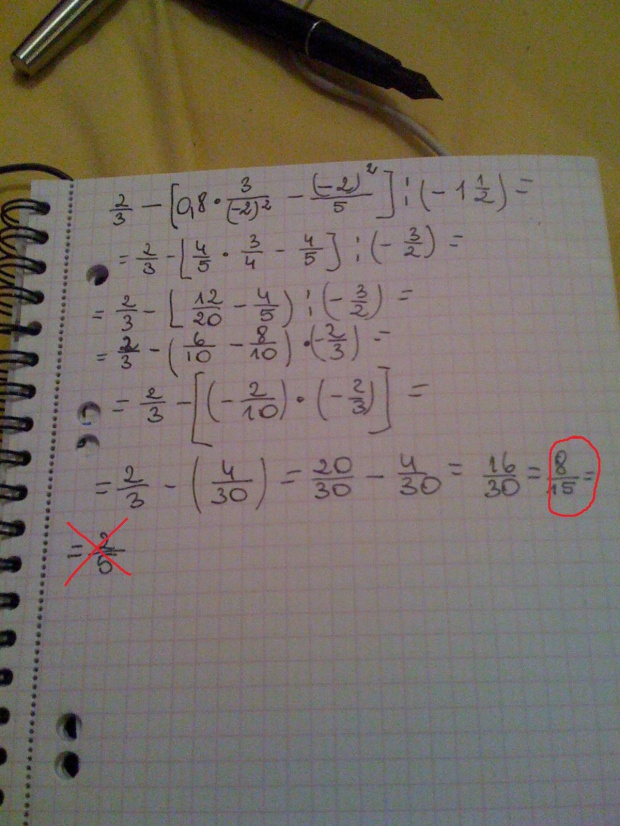 2/3 - [0,8 · 3/(-2)² - (-2)²/5] : (-1 1/2) =
= 2/3 - [4/5 · 3/4 - 4/5] : (-3/2) =
= 2/3 - [12/20 - 4/5) : (-3/2) =
= 2/3 - (6/10 - 8/10) · (-2/3) =
= 2/3 - [(-2/10) · (-2/3)] =
= 2/3 - (4/30) = 20/30 - 4/30 = 16/30 = 8/15 =
= 2/5